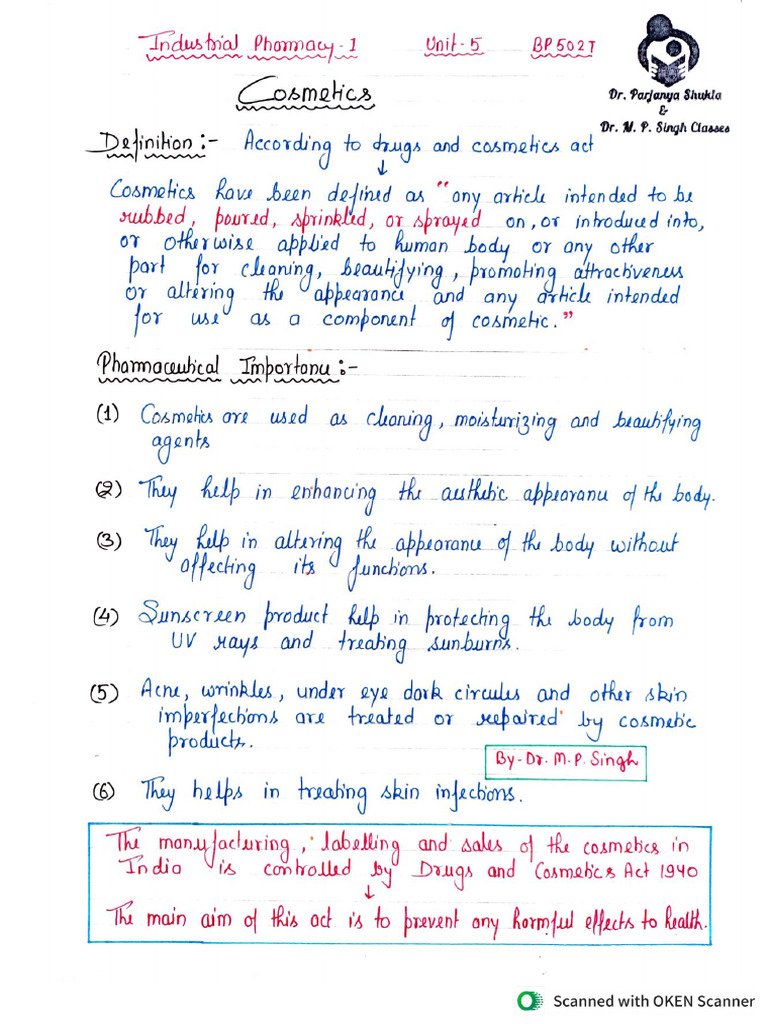 Industrial Pharmacy-1 Unit-5 BP502T
Dr. Parjanya Shukla
&
Dr. M. P. Singh Classes
Cosmetics
Definition:- According to drugs and cosmetics act
↓
Cosmetics have been defined as "any article intended to be
rubbed, poured, sprinkled, or sprayed on, or introduced into,
or otherwise applied to human body or any other
part for cleaning, beautifying, promoting attractiveness
or altering the appearance and any article intended
for use as a component of cosmetic."
Pharmaceutical Importance:-
(1) Cosmetics are used as cleaning, moisturizing and beautifying
agents
(2) They help in enhancing the aesthetic appearance of the body.
(3) They help in altering the appearance of the body without
affecting its functions.
(4) Sunscreen product help in protecting the body from
UV rays and treating sunburns.
(5) Acne, wrinkles, under eye dark circules and other skin
imperfections are treated or repaired by cosmetic
products.
By-Dr. M.P. Singh
(6) They helps in treating skin infections.
The manufacturing, labelling and sales of the cosmetics in
India is controlled by Drugs and Cosmetics Act 1940
↓
The main aim of this act is to prevent any harmful effects to health.
Scanned with OKEN Scanner